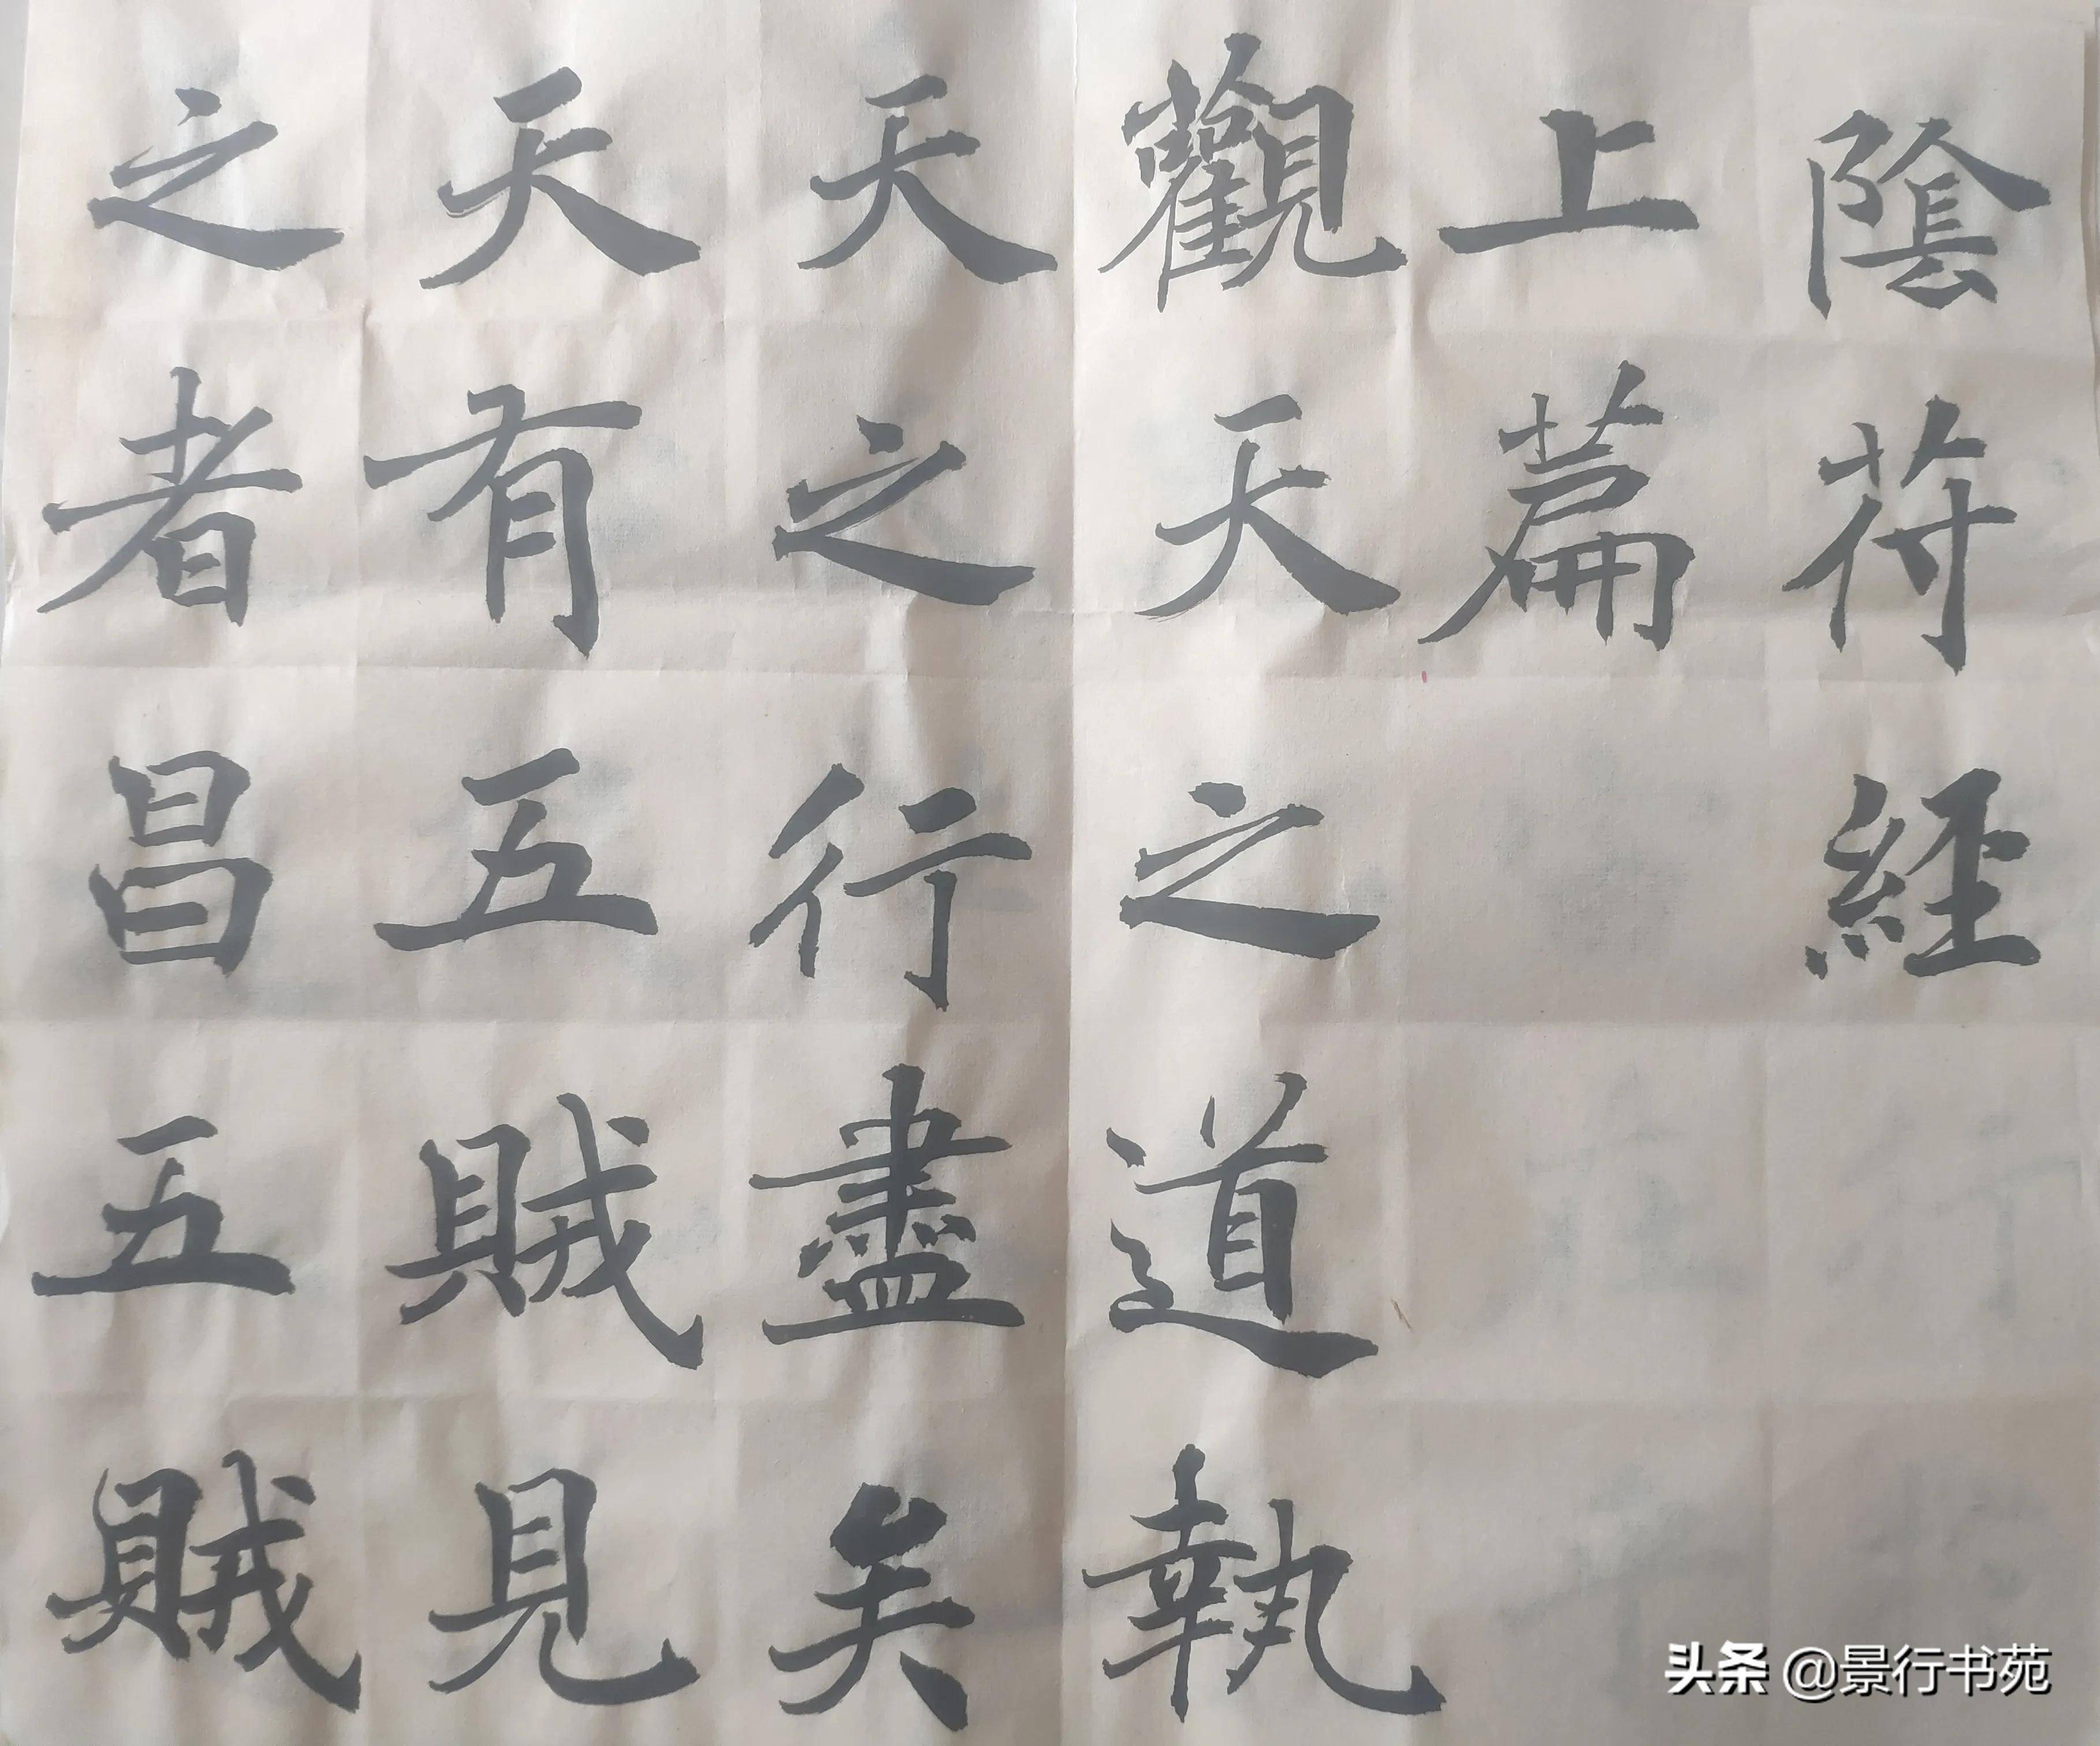 陰符經
上篇
觀天之道執
天之行盡矣
天有五賊見
之者昌五賊
头条 @景行书苑